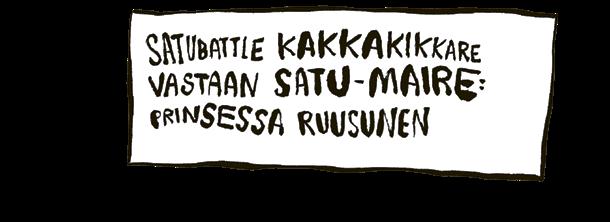 SATUBATTLE KAKKAKIKKARE
VASTAAN SATU-MAIRE:
PRINSESSA RUUSUNEN